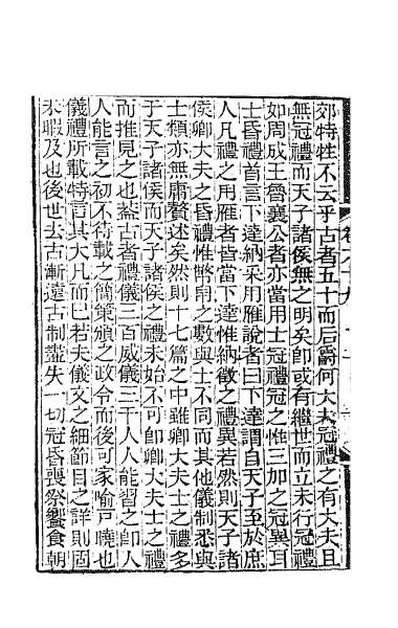 郊特牲不云乎古者五十而后爵何大夫冠禮之有大夫且
無冠禮而天子諸侯無之明矣卽或有繼世而立未行冠禮
如周成王魯襄公者亦當用士冠禮冠之惟三加之冠異耳
士昏禮首言下達納采用雁說者曰下達謂自天子至於庶
人凡禮之用雁者皆當下達惟納徵之禮異若然則天子諸
侯卿大夫之昏禮惟幣帛之數與士不同而其他儀制悉與
士類亦無庸贅述矣然則十七篇之中雖卿大夫士之禮多
于天子諸侯而天子諸侯之禮未始不可卽卿大夫士之禮
而推見之也蓋古者禮儀三百威儀三千人人能習之卽人
人能言之初不待載之簡策頒之政令而後可家喻戶曉也
儀禮所載特言其大凡而已若夫儀文之細節目之詳則固
未暇及也後世去古漸遠古制盡失一切冠昏喪祭饗食朝